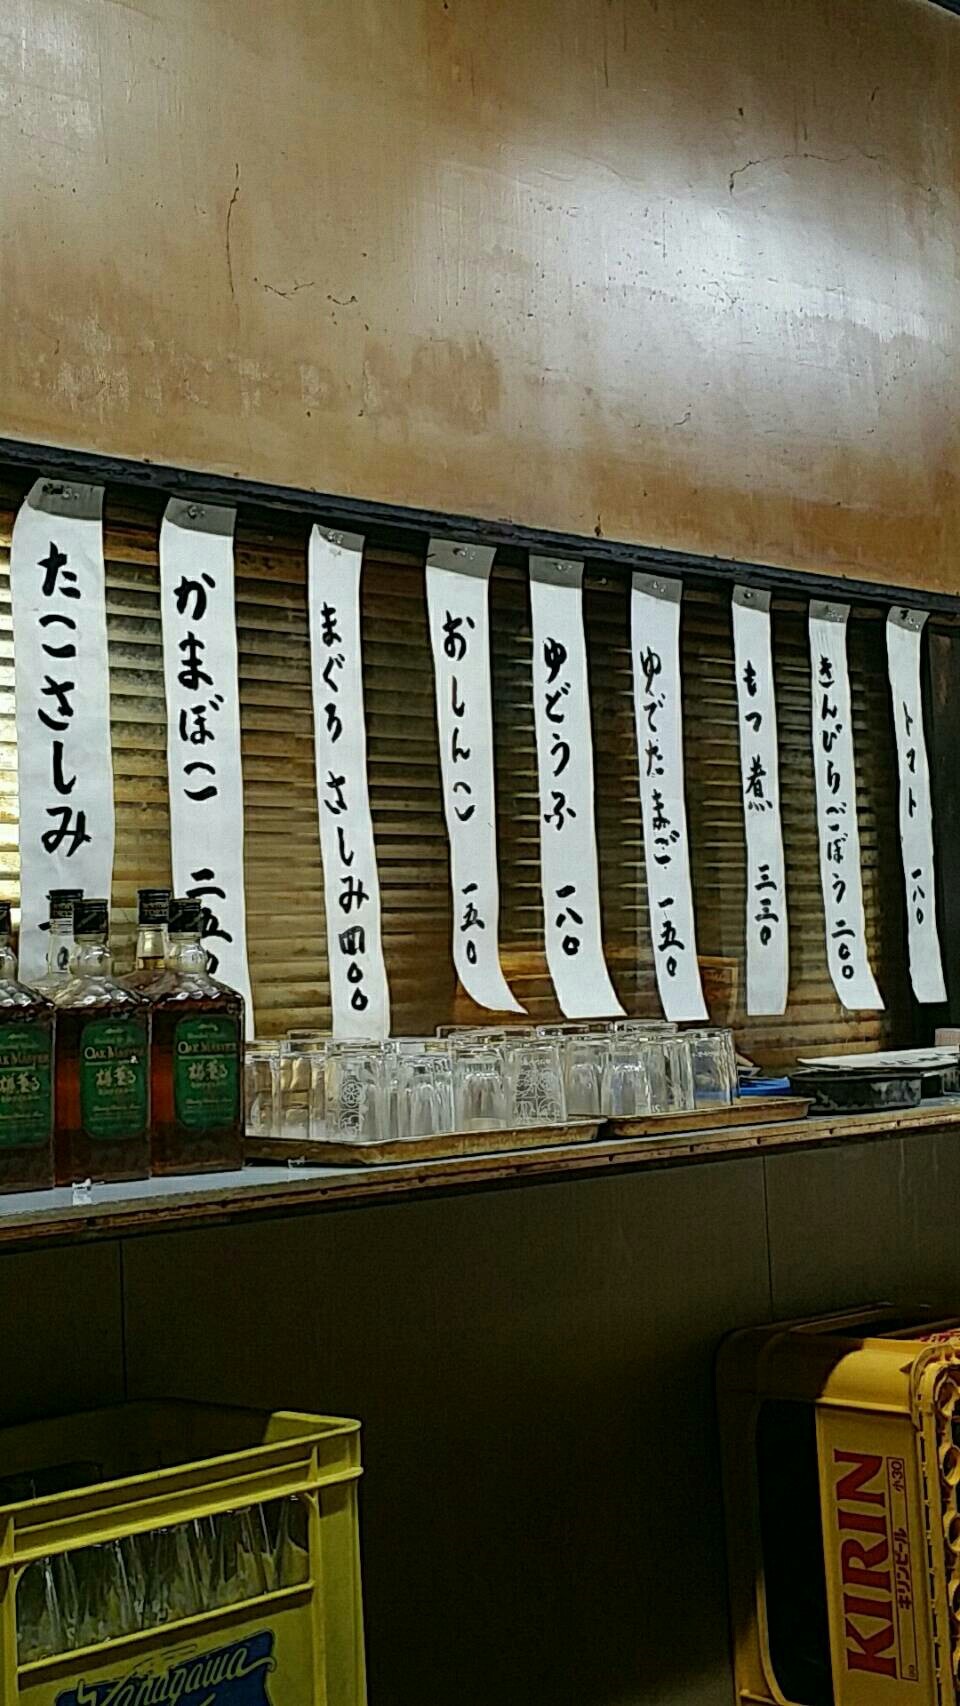 たこさしみ
かまぼこ 二五
まぐろさしみ 四〇〇
おしんこ 一五〇
ゆどうふ 一八〇
ゆでたまご 一五〇
もつ煮 三三〇
きんぴらごぼう 二〇〇
トマト 一八〇
OAK MASTER
樽薫る
OAK MASTER
樽薫る
OAK MASTER
樽薫る
KIRIN
キリンビール
小30
Yanagawa